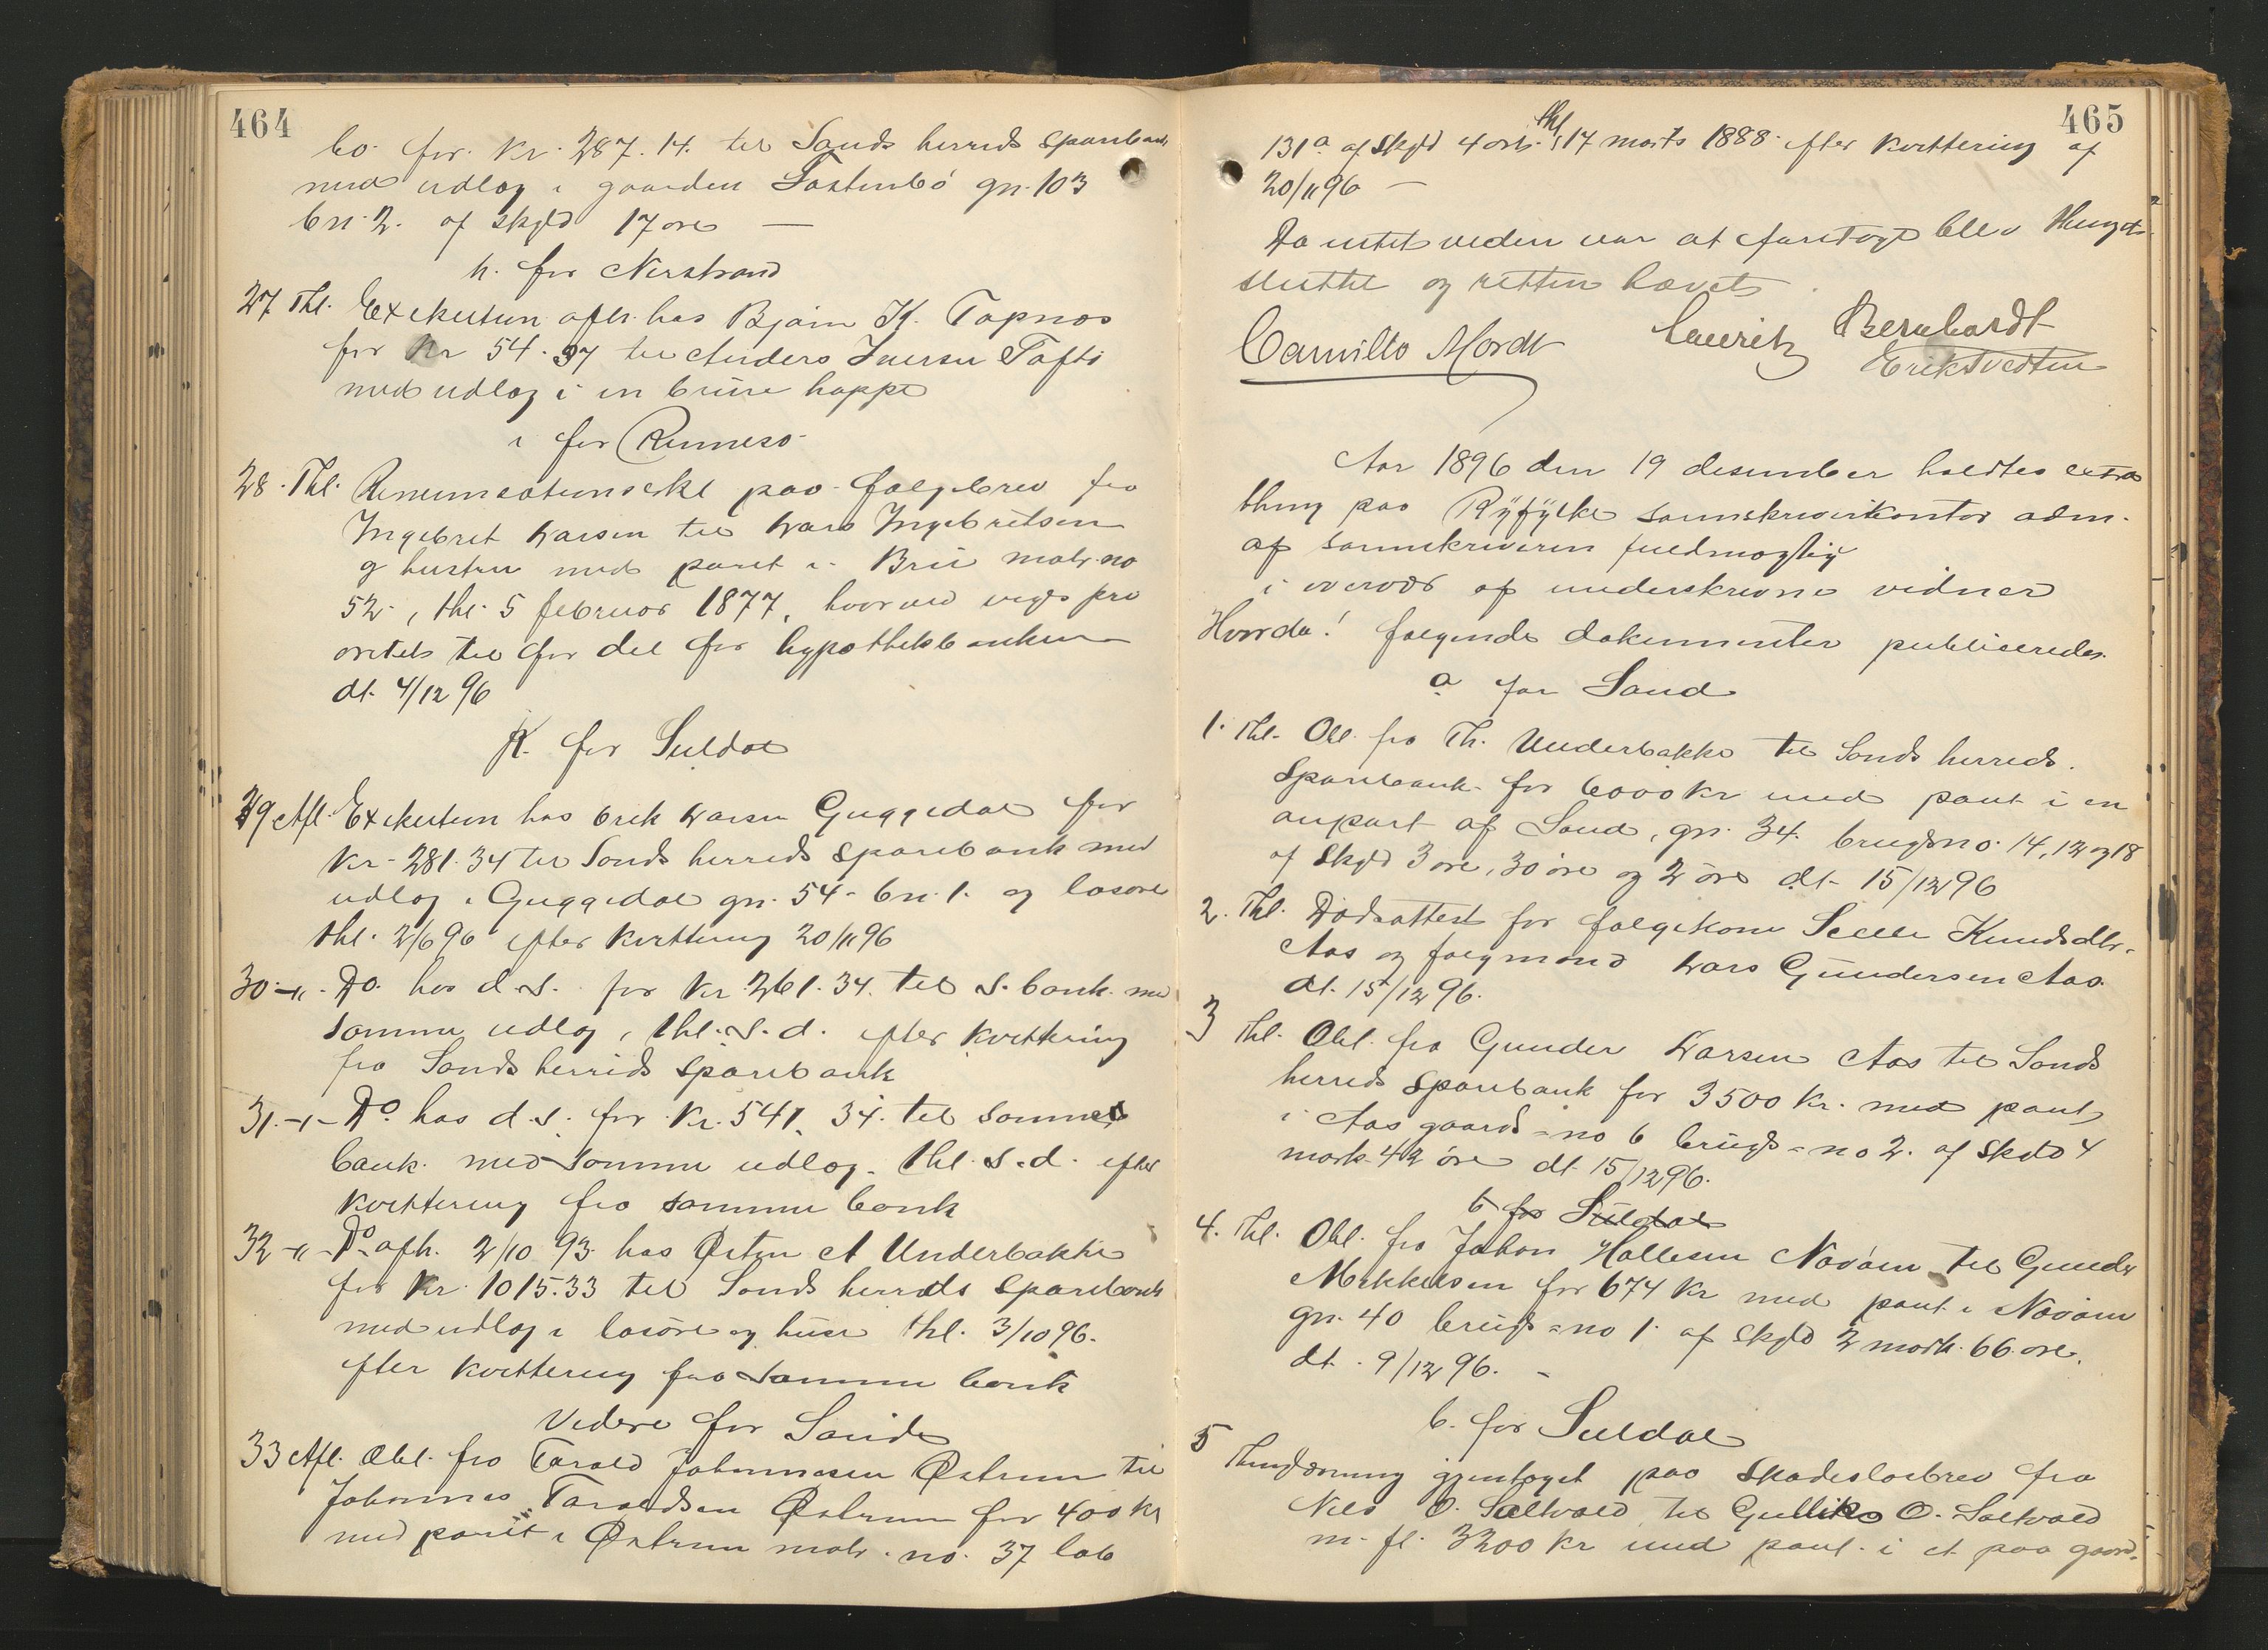 464
bo. for. kr. 287.14. til Sands herreds sparebank
med udlæg i gaarden Tastenbø gn. 103
bn 2. af skyld 17 øre —
h. for Nerstrand
27. Thl. Exekution afh. hos Bjørn K. Tapnes
for kr 54.97 til Anders Iversen Tafte
med udlæg i en brun hoppe
i for Rennesø
28. Thl. Renunsationserkl paa folgebrev fra
Ingebret Larsen til Lars Ingebretsen
og hustru med pant i Brū matr. no
52, thl. 5 februar 1877, hvorved viges pri
oritets til for del for hypothekbanken
dt. 4/12 96
K. for Suldal
29 Afl. Exekution hos Erik Larsen Guggedal for
kr. 281.34 til Sands herreds sparebank med
udlæg i Guggedal gn. 54. bn. 1. og løsøre
thl. 2/6 96 efter kvittering 20/11 96
30. -"- Do. hos d.s. for kr. 261.34. til s. bank. med
samme udlæg, thl. s. d. efter kvittering
fra Sands herreds sparebank
31. -"- Do hos d.s. for kr. 541.34. til samme
bank. med samme udlæg. thl. s. d. efter
kvittering fra samme bank
32 -"- Do. afh. 2/10 93 hos Østen A Underbakke
for kr. 1015.33 til Sands herreds sparebank
med udlæg i løsøre og huse thl. 3/10 96.
efter kvittering fra samme bank
Videre for Sand
33 Afl. Obl. fra Tarald Johannesen Østrem til
Johannes Taraldsen Østrem for 400 kr
med pant i Østrem matr. no. 37 løb
465
131a af skyld 4 ort. thl 17 marts 1888 efter kvittering af
20/11 96 —
Da intet videre var at foretage blev thinget
sluttet og retten hævet.
Camillo Mordt Lauritz Bernhardt
Erik Tvedten
Aar 1896 den 19 desember holdtes extra
thing paa Ryfylke sorenskriverkontor adm.
af sorenskriveren fuldmægtig
i overvær af underskrevne vidner
Hvorda! følgende dokumenter publiceredes.
a for Sand
1. Thl. Obl. fra Th. Underbakke til Sands herreds.
Sparebank for 6000 kr med pant i en
anpart af Sand, gn. 34. brugsno. 14, 12 og 18
af skyld 3 øre, 30 øre og 2 øre dt. 15/12 96
2. Thl. Dødsattest for folgekone Seelle Knudsdtr.
Aas og folgmand Lars Gundersen Aas.
dt. 15/12 96.
3 Thl. Obl. fra Gunder Larsen Aas til Sands
herreds sparebank for 3500 kr. med pant
i Aas gaards=no 6 brugs=no 2. af skyld 4
mark 42 øre dt 15/12 96.
b for Suldal
4. Thl. Obl. fra Jakon Hallesen Nøvøen til Gunder
Mikkelsen for 674 kr med pant i Nøvøen
gn. 40 brugs=no 1. af skyld 2 mark. 66 øre.
dt. 9/12 96. -
b. for Suldal
5 Thinglæsning gjentaget paa skadesløsbrev fra
Nils O. Saltvold til Gullik O. Saltvold
m. fl. 3300 kr med pant i et paa gaard-